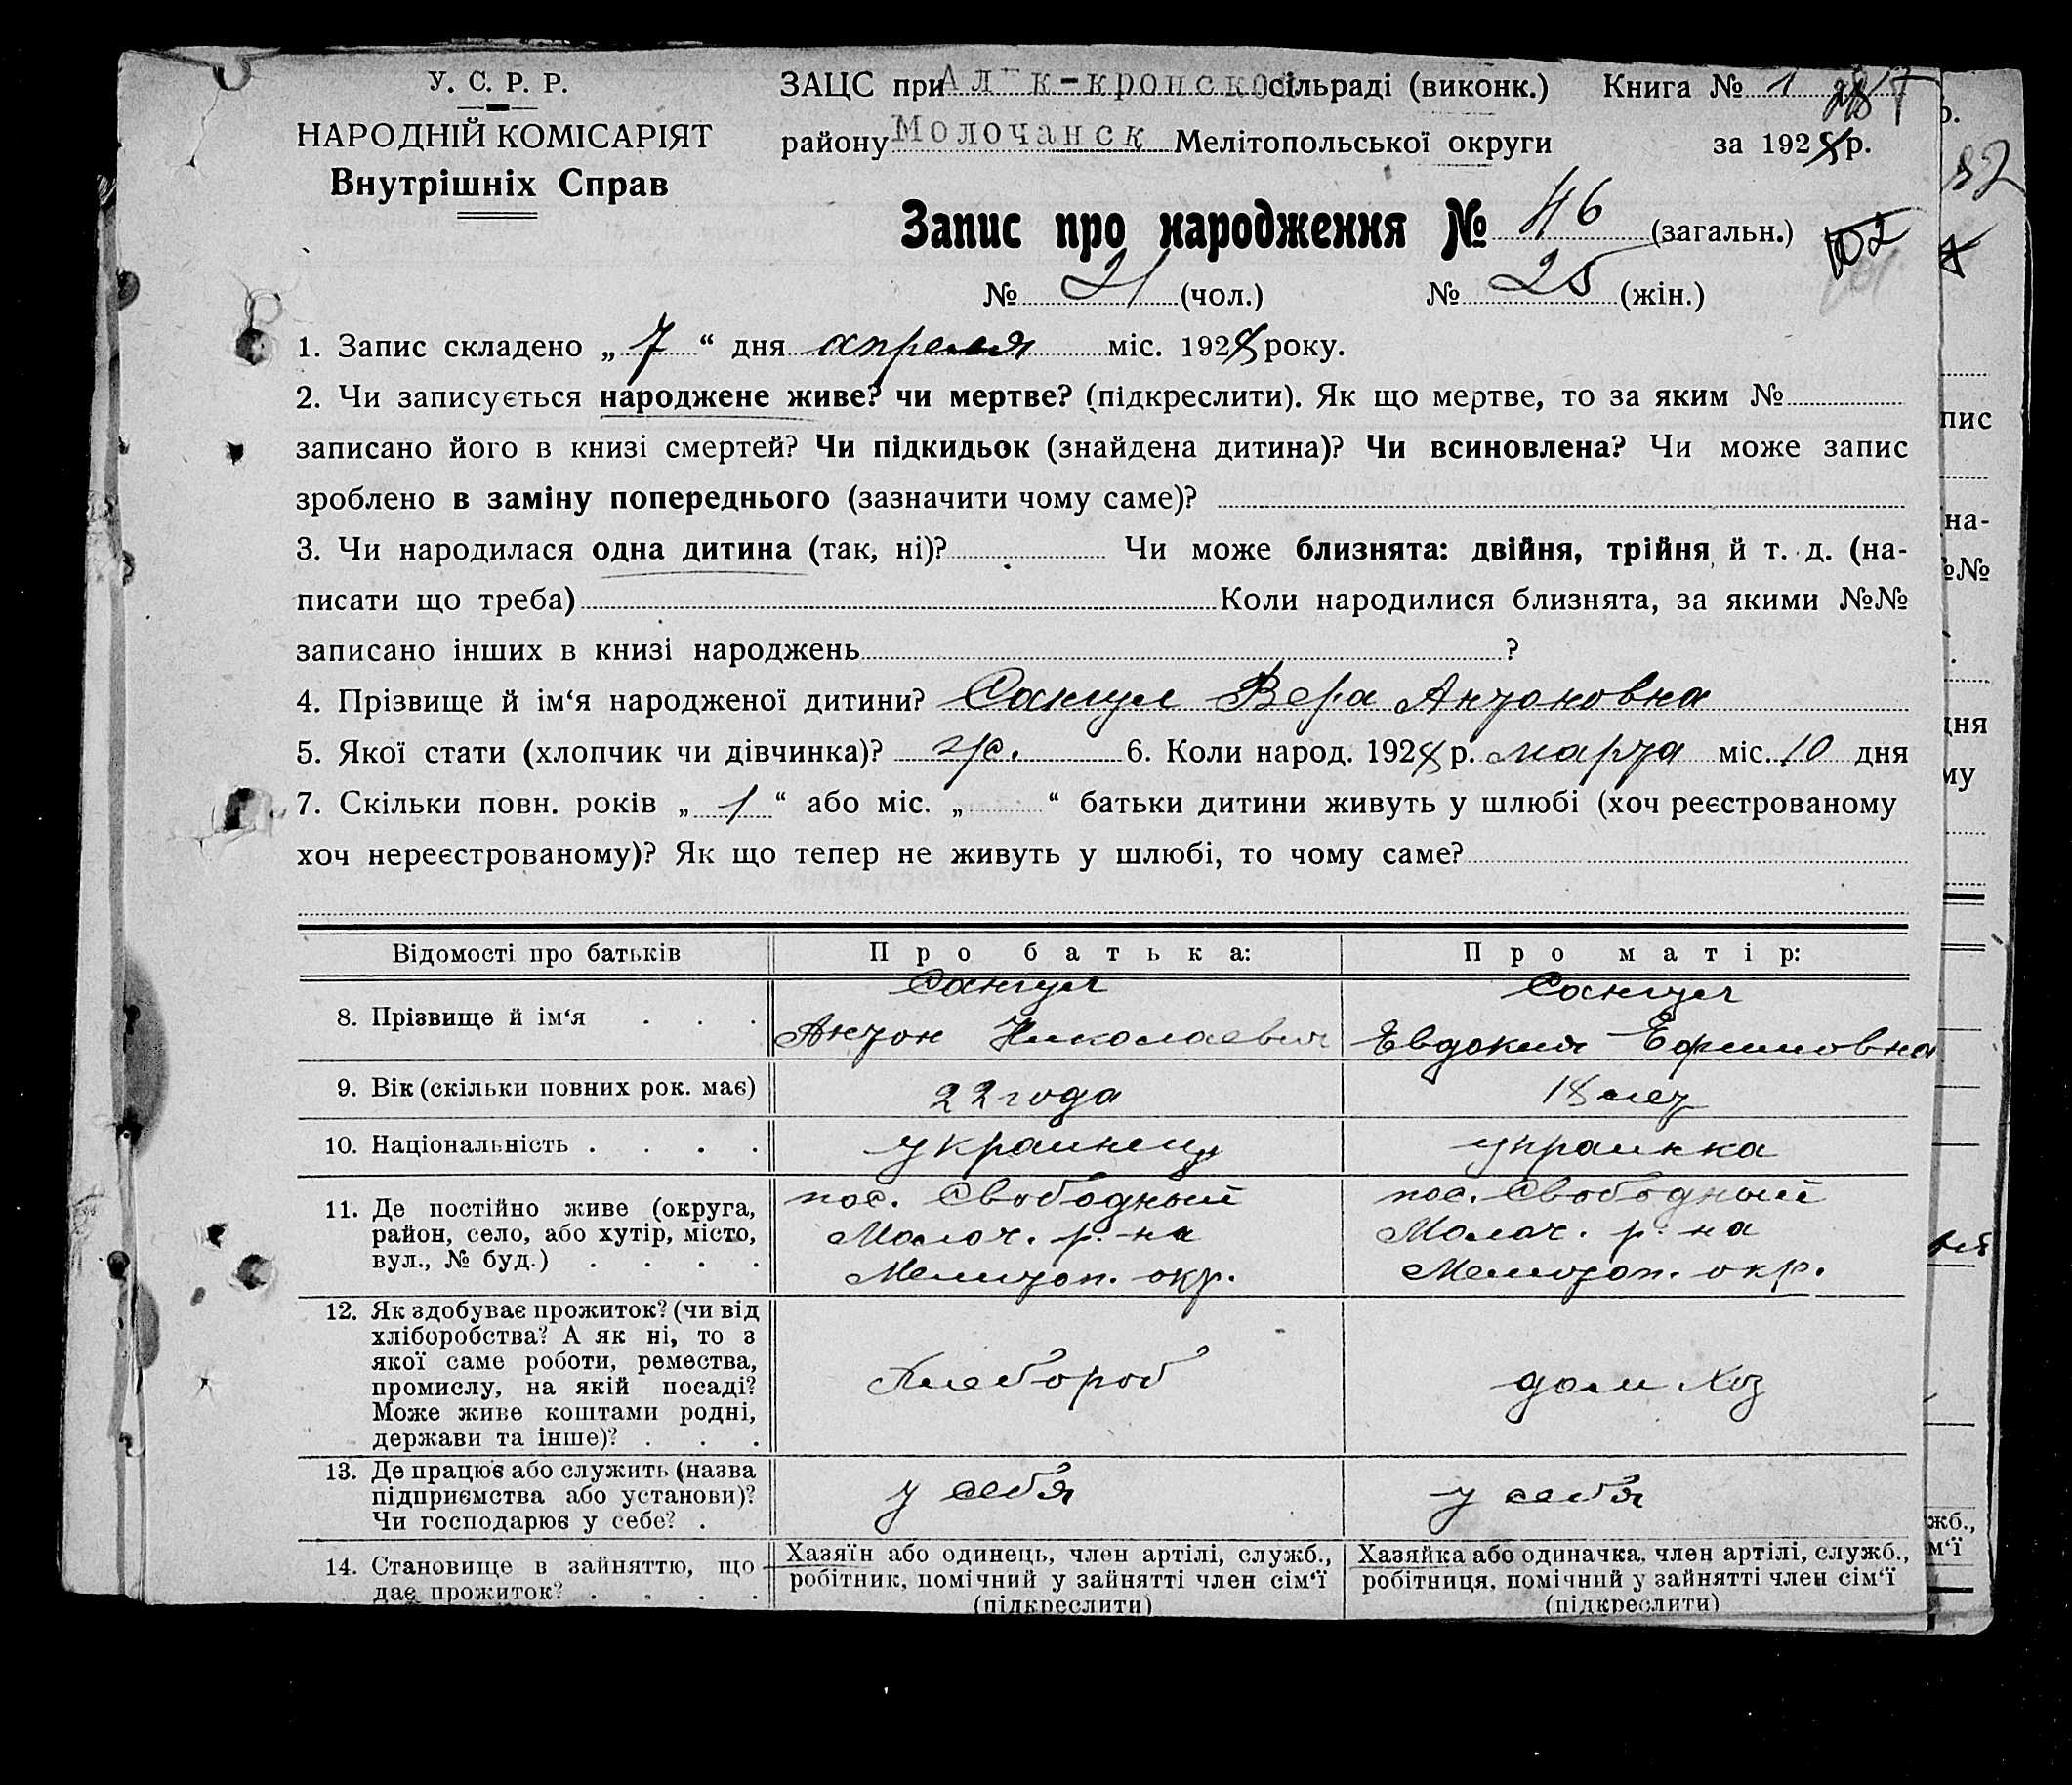 У. С. Р. Р.
НАРОДНІЙ КОМІСАРІЯТ
Внутрішніх Справ
ЗАЦС при Ал-к-кронско сільраді (виконк.) Книга № 1
району Молочанск Мелітопольської округи за 1928 р.
Запис про народження № 46 (загальн.)
102
№ 21 (чол.) № 25 (жін.)
1. Запис складено „ 7 “ дня апреля міс. 1928 року.
2. Чи записується народжене живе? чи мертве? (підкреслити). Як що мертве, то за яким №
записано його в книзі смертей? Чи підкидьок (знайдена дитина)? Чи всиновлена? Чи може запис
зроблено в заміну попереднього (зазначити чому саме)?
3. Чи народилася одна дитина (так, ні)? Чи може близнята: двійня, трійня й т. д. (на-
писати що треба) Коли народилися близнята, за якими №№
записано інших в книзі народжень ?
4. Прізвище й ім‘я народженої дитини? Вера Антоновна
5. Якої стати (хлопчик чи дівчинка)? ж. 6. Коли народ. 1928 р. марта міс. 10 дня
7. Скільки повн. років „ 1 “ або міс. „ “ батьки дитини живуть у шлюбі (хоч реєстрованому
хоч нереєстрованому)? Як що тепер не живуть у шлюбі, то чому саме?
Відомості про батьків Про батька: Про матір:
8. Прізвище й ім‘я
Антон Николаевич Евдокия Ефимовна
9. Вік (скільки повних рок. має) 22 года 18 лет
10. Національність украинец украинка
11. Де постійно живе (округа, район, село, або хутір, місто, вул., № буд.)
пос. Свободный пос. Свободный
Молоч. р-на Молоч. р-на
Мелитоп. окр. Мелитоп. окр.
12. Як здобуває прожиток? (чи від
хліборобства? А як ні, то з
якої саме роботи, ремества,
промислу, на якій посаді?
Може живе коштами родні,
держави та інше)?
Хлебороб дом хоз
13. Де працює або служить (назва
підприємства або установи)?
Чи господарює у себе?
у себя у себя
14. Становище в зайняттю, що
дає прожиток?
Хазяїн або одинець, член артілі, служб.,
робітник, помічний у зайнятті член сім‘ї
(підкреслити)
Хазяйка або одиначка, член артілі, служб.,
робітниця, помічний у зайнятті член сім‘ї
(підкреслити)